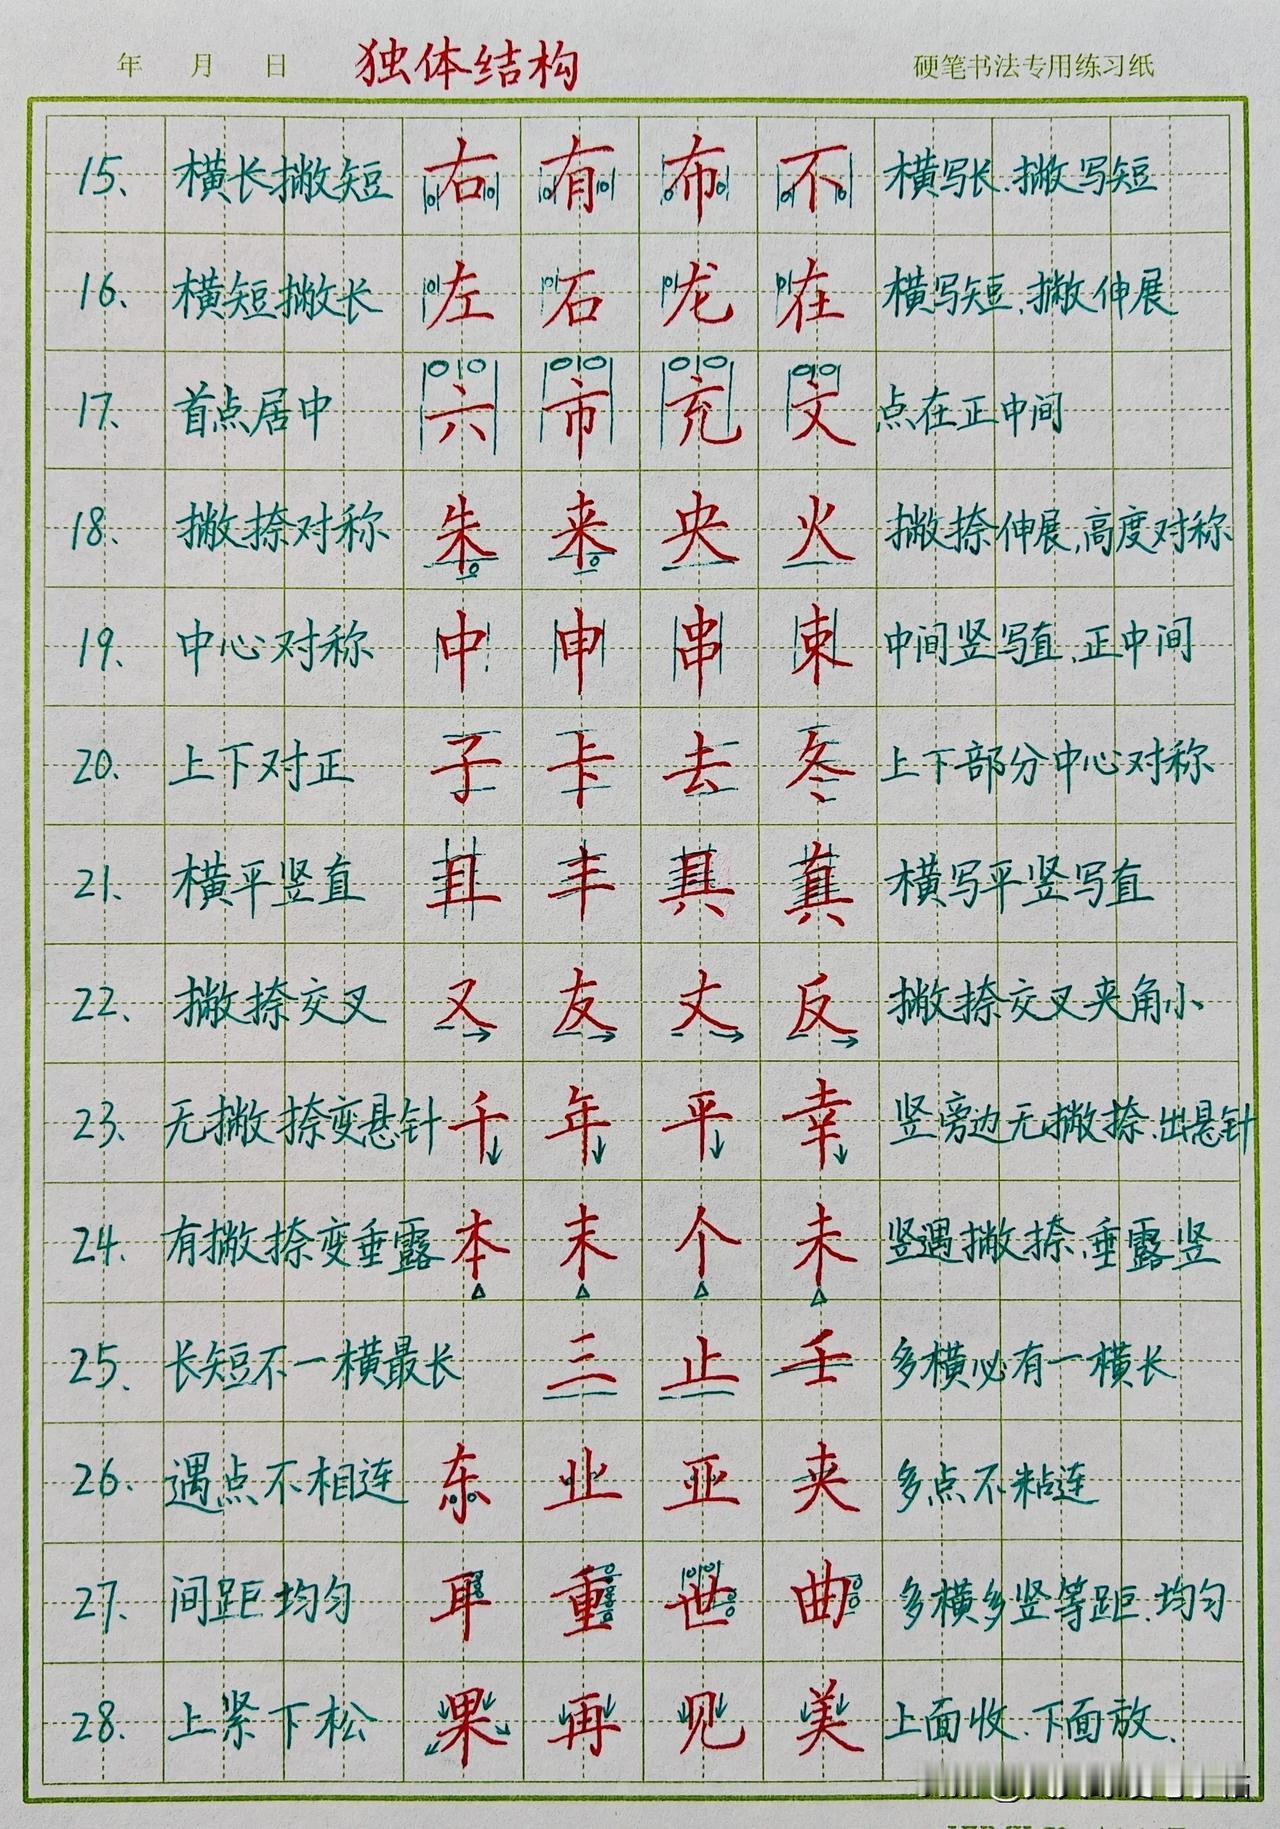 年 月 日 独体结构 硬笔书法专用练习纸
15、横长撇短 右 有 布 不 横写长、撇写短
16、横短撇长 左 石 龙 在 横写短、撇伸展
17、首点居中 六 市 充 文 点在正中间
18、撇捺对称 朱 来 央 火 撇捺伸展,高度对称
19、中心对称 中 申 串 束 中间竖写直、正中间
20、上下对正 子 卡 去 冬 上下部分中心对称
21、横平竖直 且 丰 具 真 横写平竖写直
22、撇捺交叉 又 友 丈 反 撇捺交叉夹角小
23、无撇捺变悬针 千 年 平 幸 竖旁边无撇捺、出悬针
24、有撇捺变垂露 本 末 个 未 竖遇撇捺、垂露竖
25、长短不一横最长 三 止 壬 多横必有一横长
26、遇点不相连 东 业 亚 夹 多点不粘连
27、间距均匀 耳 重 世 曲 多横多竖等距、均匀
28、上紧下松 果 再 见 美 上面收、下面放、